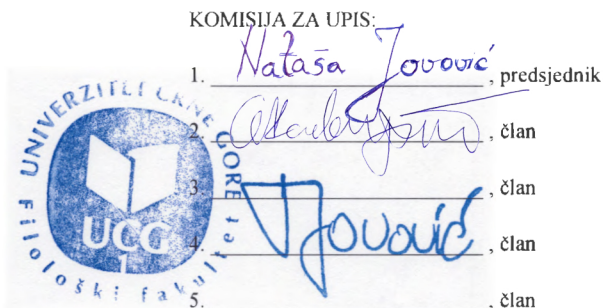 KOMISIJA ZA UPIS:
1. Nataša Jovović, predsjednik
2. , član
3 , član
4. Jovović, član
5. , član
UNIVERZITET CRNE GORE
UCG
1
Filološki fakultet